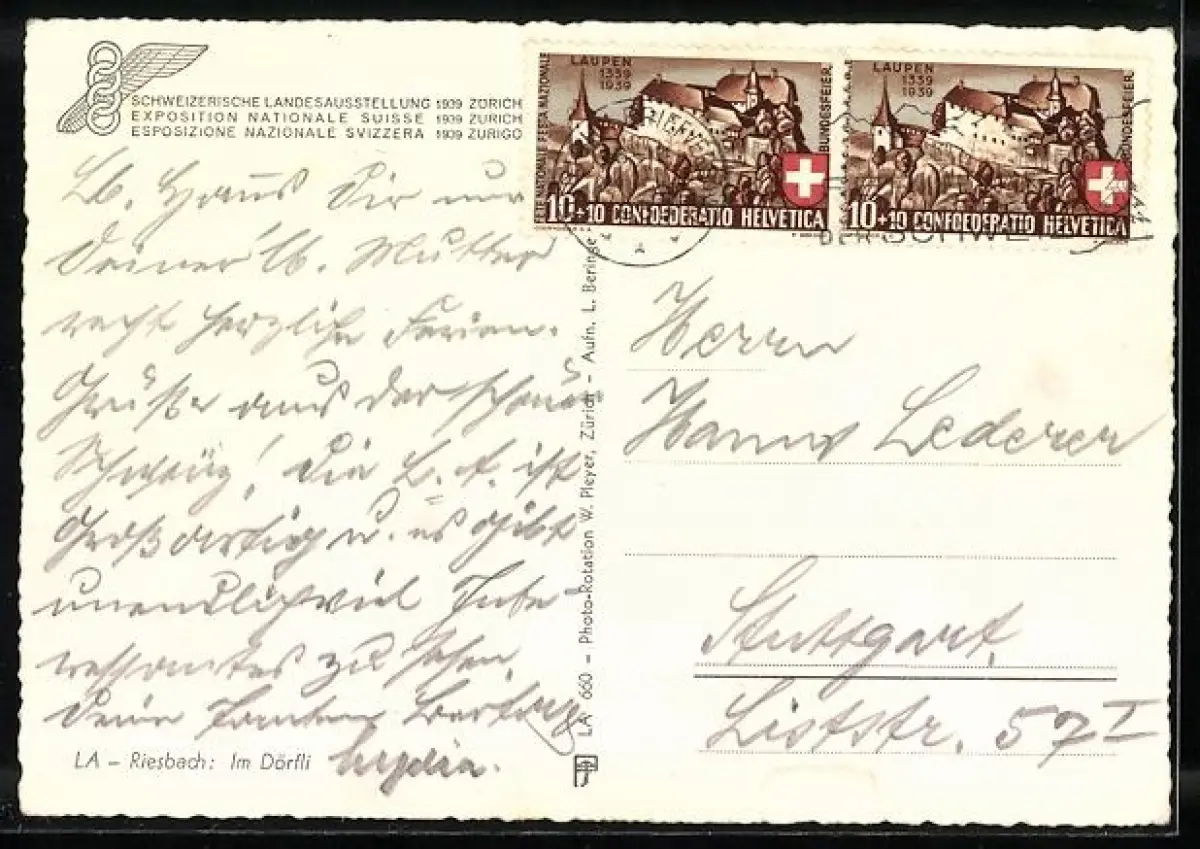 SCHWEIZERISCHE LANDESAUSSTELLUNG 1939 ZÜRICH
EXPOSITION NATIONALE SUISSE 1939 ZURICH
ESPOSIZIONE NAZIONALE SVIZZERA 1939 ZURIGO
Lb. Hans Dir und
Deiner lb. Mutter
recht herzliche Ferien-
Grüße aus der schönen
Schweiz! Die L. A. ist
Großartig u. es gibt
unendlich viel Inte-
ressantes zu sehen.
Deine Tanten Berta u.
Lydia.
LA – Riesbach: Im Dörfli
LA 660 – Photo-Rotation W. Pleyer, Zürich – Aufn. L. Beringer
LAUPEN
1339
1939
BUNDESFEIER
10+10 CONFOEDERATIO HELVETICA
LAUPEN
1339
1939
BUNDESFEIER.
10+10 CONFOEDERATIO HELVETICA
Herrn
Hanns Lederer
Stuttgart.
Liststr. 57 I